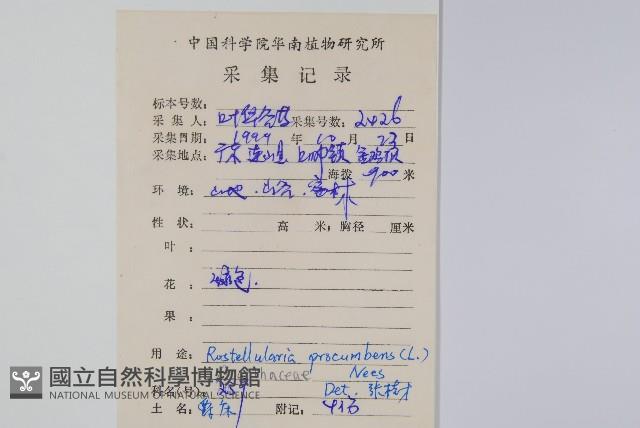 中国科学院华南植物研究所
采集记录
标本号数：
采集人：叶华谷 采集号数：2426
采集日期：1999年10月23日
采集地点：广东 连山县 上帅镇
海拨 900 米
环境：山地．山谷．密林
性状： 高 米；胸径 厘米
叶：
花：绿色．
果：
用途：Rostellularia procumbens (L.)
Nees
科名(号)： Det. 张桂才
土名：爵床 附记：4份
國立自然科學博物館
NATIONAL MUSEUM OF NATURAL SCIENCE